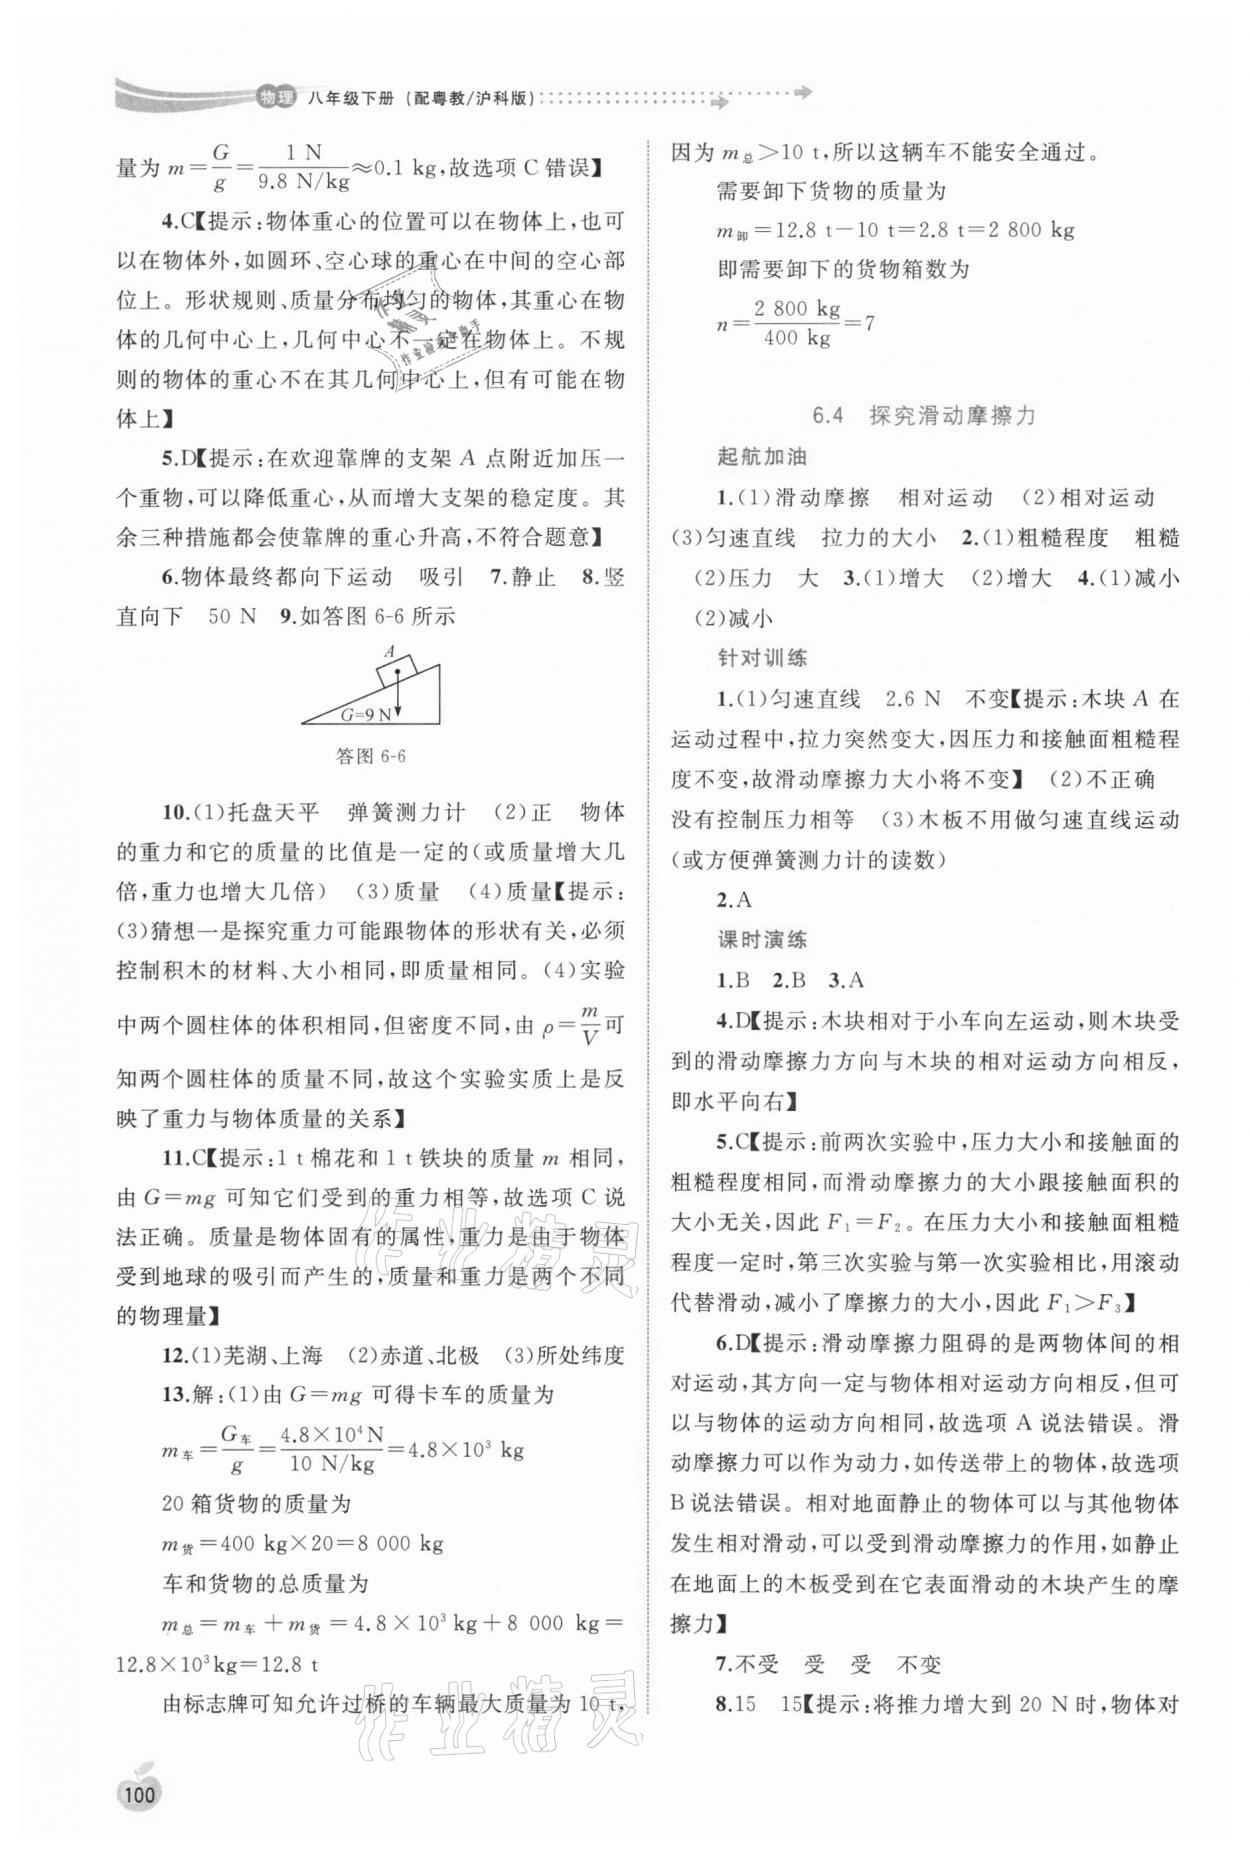 物理 八年级下册(配粤教/沪科版)
量为 m=G/g=1 N/9.8 N/kg≈0.1 kg,故选项 C 错误】
4.C【提示:物体重心的位置可以在物体上,也可
以在物体外,如圆环、空心球的重心在中间的空心部
位上。形状规则、质量分布均匀的物体,其重心在物
体的几何中心上,几何中心不一定在物体上。不规
则的物体的重心不在其几何中心上,但有可能在物
体上】
5.D【提示:在欢迎靠牌的支架 A 点附近加压一
个重物,可以降低重心,从而增大支架的稳定度。其
余三种措施都会使靠牌的重心升高,不符合题意】
6.物体最终都向下运动 吸引 7.静止 8.竖
直向下 50 N 9.如答图 6-6 所示
A
G=9 N
答图 6-6
10.(1)托盘天平 弹簧测力计 (2)正 物体
的重力和它的质量的比值是一定的(或质量增大几
倍,重力也增大几倍) (3)质量 (4)质量【提示:
(3)猜想一是探究重力可能跟物体的形状有关,必须
控制积木的材料、大小相同,即质量相同。(4)实验
中两个圆柱体的体积相同,但密度不同,由 ρ=m/V可
知两个圆柱体的质量不同,故这个实验实质上是反
映了重力与物体质量的关系】
11.C【提示:1 t 棉花和 1 t 铁块的质量 m 相同,
由 G=mg 可知它们受到的重力相等,故选项 C 说
法正确。质量是物体固有的属性,重力是由于物体
受到地球的吸引而产生的,质量和重力是两个不同
的物理量】
12.(1)芜湖、上海 (2)赤道、北极 (3)所处纬度
13.解:(1)由 G=mg 可得卡车的质量为
m车=G车/g=4.8×10⁴N/10 N/kg=4.8×10³ kg
20 箱货物的质量为
m货=400 kg×20=8 000 kg
车和货物的总质量为
m总=m车+m货=4.8×10³kg+8 000 kg=
12.8×10³kg=12.8 t
由标志牌可知允许过桥的车辆最大质量为 10 t,
因为 m总>10 t,所以这辆车不能安全通过。
需要卸下货物的质量为
m卸=12.8 t-10 t=2.8 t=2 800 kg
即需要卸下的货物箱数为
n=2 800 kg/400 kg=7
6.4 探究滑动摩擦力
起航加油
1.(1)滑动摩擦 相对运动 (2)相对运动
(3)匀速直线 拉力的大小 2.(1)粗糙程度 粗糙
(2)压力 大 3.(1)增大 (2)增大 4.(1)减小
(2)减小
针对训练
1.(1)匀速直线 2.6 N 不变【提示:木块 A 在
运动过程中,拉力突然变大,因压力和接触面粗糙程
度不变,故滑动摩擦力大小将不变】 (2)不正确
没有控制压力相等 (3)木板不用做匀速直线运动
(或方便弹簧测力计的读数)
2.A
课时演练
1.B 2.B 3.A
4.D【提示:木块相对于小车向左运动,则木块受
到的滑动摩擦力方向与木块的相对运动方向相反,
即水平向右】
5.C【提示:前两次实验中,压力大小和接触面的
粗糙程度相同,而滑动摩擦力的大小跟接触面积的
大小无关,因此 F₁=F₂。在压力大小和接触面粗糙
程度一定时,第三次实验与第一次实验相比,用滚动
代替滑动,减小了摩擦力的大小,因此 F₁>F₃】
6.D【提示:滑动摩擦力阻碍的是两物体间的相
对运动,其方向一定与物体相对运动方向相反,但可
以与物体的运动方向相同,故选项 A 说法错误。滑
动摩擦力可以作为动力,如传送带上的物体,故选项
B说法错误。相对地面静止的物体可以与其他物体
发生相对滑动,可以受到滑动摩擦力的作用,如静止
在地面上的木板受到在它表面滑动的木块产生的摩
擦力】
7.不受 受 受 不变
8.15 15【提示:将推力增大到 20 N时,物体对
作业精灵
作业精灵
100